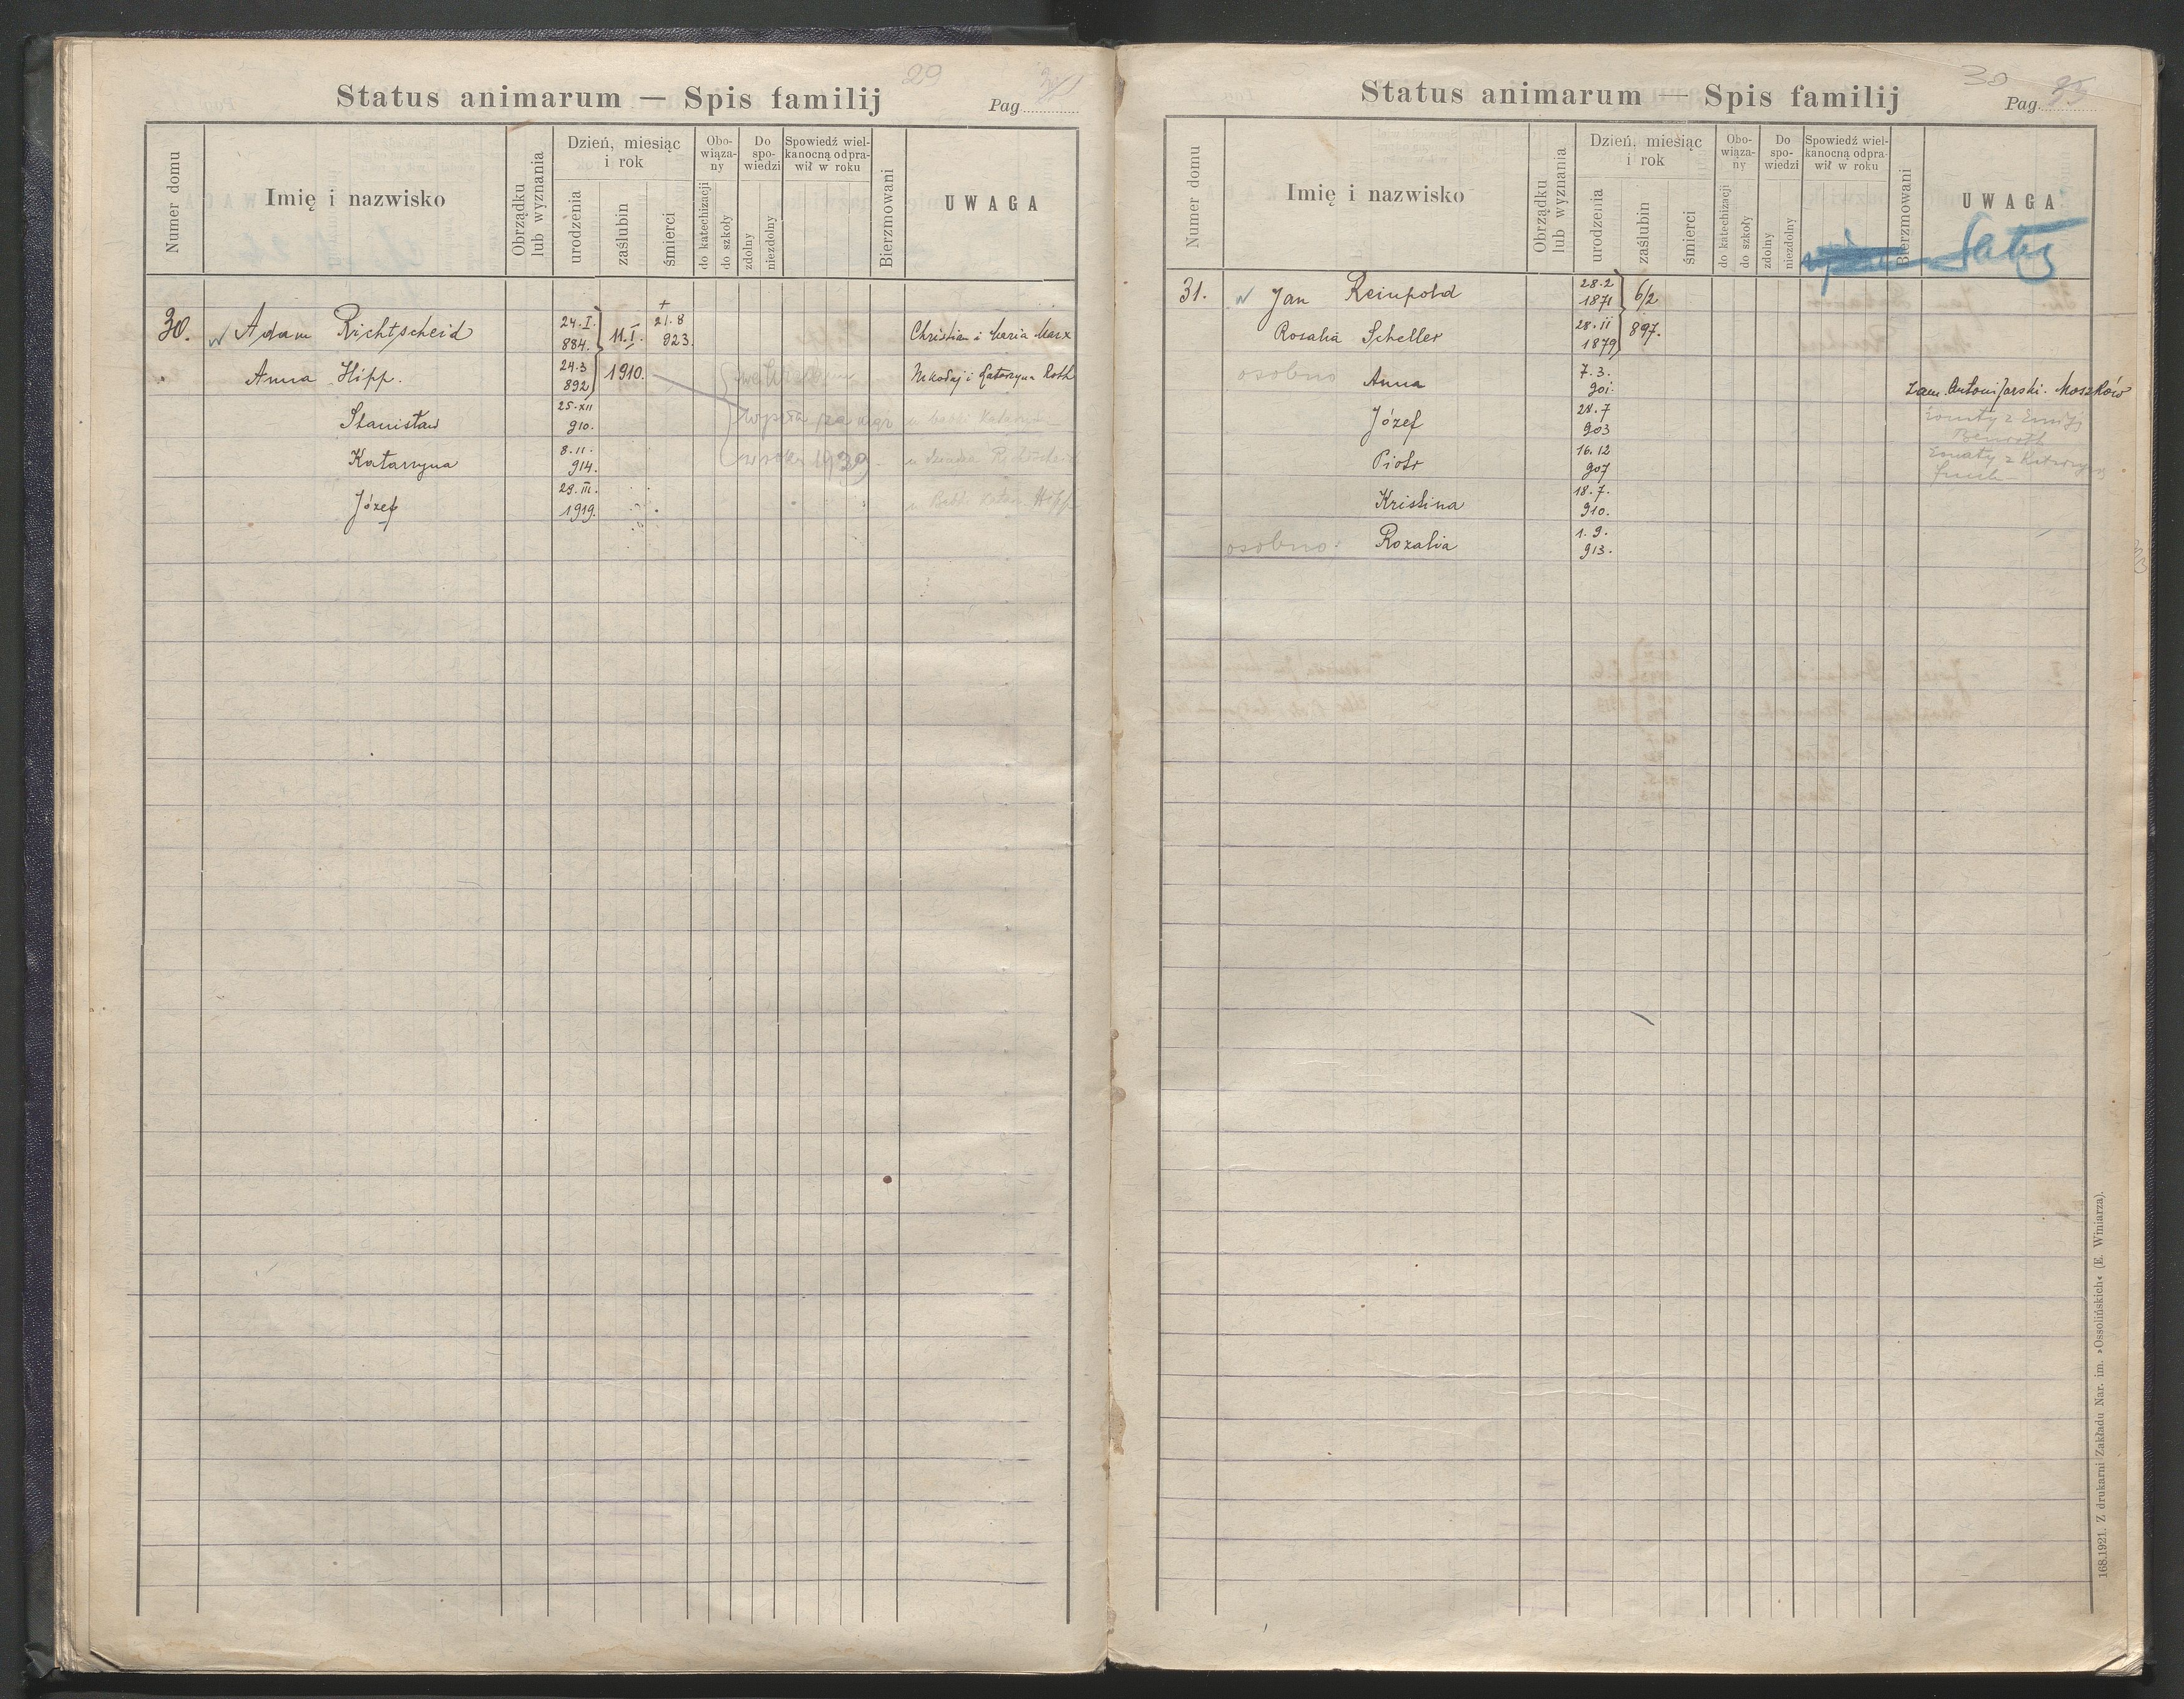 29
Status animarum — Spis familij
Pag.
Numer domu
Imię i nazwisko
Obrządku lub wyznania
Dzień, miesiąc i rok
urodzenia
zaślubin
śmierci
Obowiązany
do katechizacji
do szkoły
Do spowiedzi
zdolny
niezdolny
Spowiedź wielkanocną odprawił w roku
Bierzmowani
UWAGA
30. Adam Richtscheid 24.I. 884. 11.I. + 21.8 923. Christian i Maria Marx
Anna Hipp. 24.3 892 1910. Mikołaj i Katarzyna Roth
Stanisław 25.XII 910.
Katarzyna 8.11. 914. 1939
Józef 29.III. 1919. Hipp
30
Status animarum — Spis familij
Pag. 35
Numer domu
Imię i nazwisko
Obrządku lub wyznania
Dzień, miesiąc i rok
urodzenia
zaślubin
śmierci
Obowiązany
do katechizacji
do szkoły
Do spowiedzi
zdolny
niezdolny
Spowiedź wielkanocną odprawił w roku
Bierzmowani
UWAGA
31. Jan Reinpold 28.2 1871 6/2
Rozalia Scheller 28.11 1879 897.
osobno Anna 7.3. 901. zam. Antoni Jarski. Moszków
Józef 28.7 903 żonaty z Emilją
Piotr 16.12 907 żonaty z Katarzyną
Kristina 18.7. 910.
osobno Rozalia 1.9. 913.
168.1921. Z drukarni Zakładu Nar. im. »Ossolińskich« (E. Winiarza).